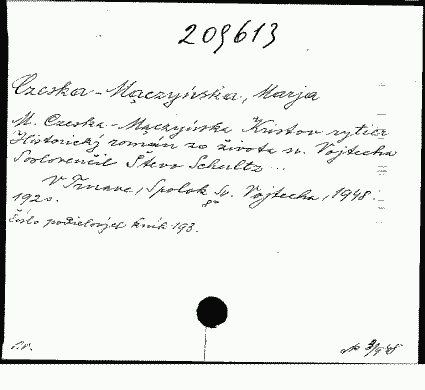 209613
Czeska-Mączyńska, Marja
M. Czeska-Mączyńska Kristov rytier
Historický román zo života sv. Vojtecha
Poslovenčil Števo Schultz...
V Trnave, Spolok Sv. Vojtecha, 1948.
192 s. 8°
Číslo podielových kníh 193.